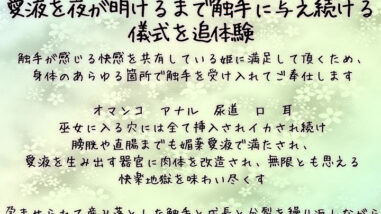 愛液を夜が明けるまで触手に与え続ける
儀式を追体験
触手が感じる快感を共有している姫に満足して頂くため、
身体のあらゆる箇所で触手を受け入れてご奉仕します
オマンコ アナル 尿道 口 耳
巫女に入る穴には全て挿入されイカされ続け
膀胱や直腸までも媚薬愛液で満たされ、
愛液を生み出す器官に肉体を改造され、無限とも思える
快楽地獄を味わい尽くす
孕ませられて産み落とした触手と成長と分裂を繰り返しながら